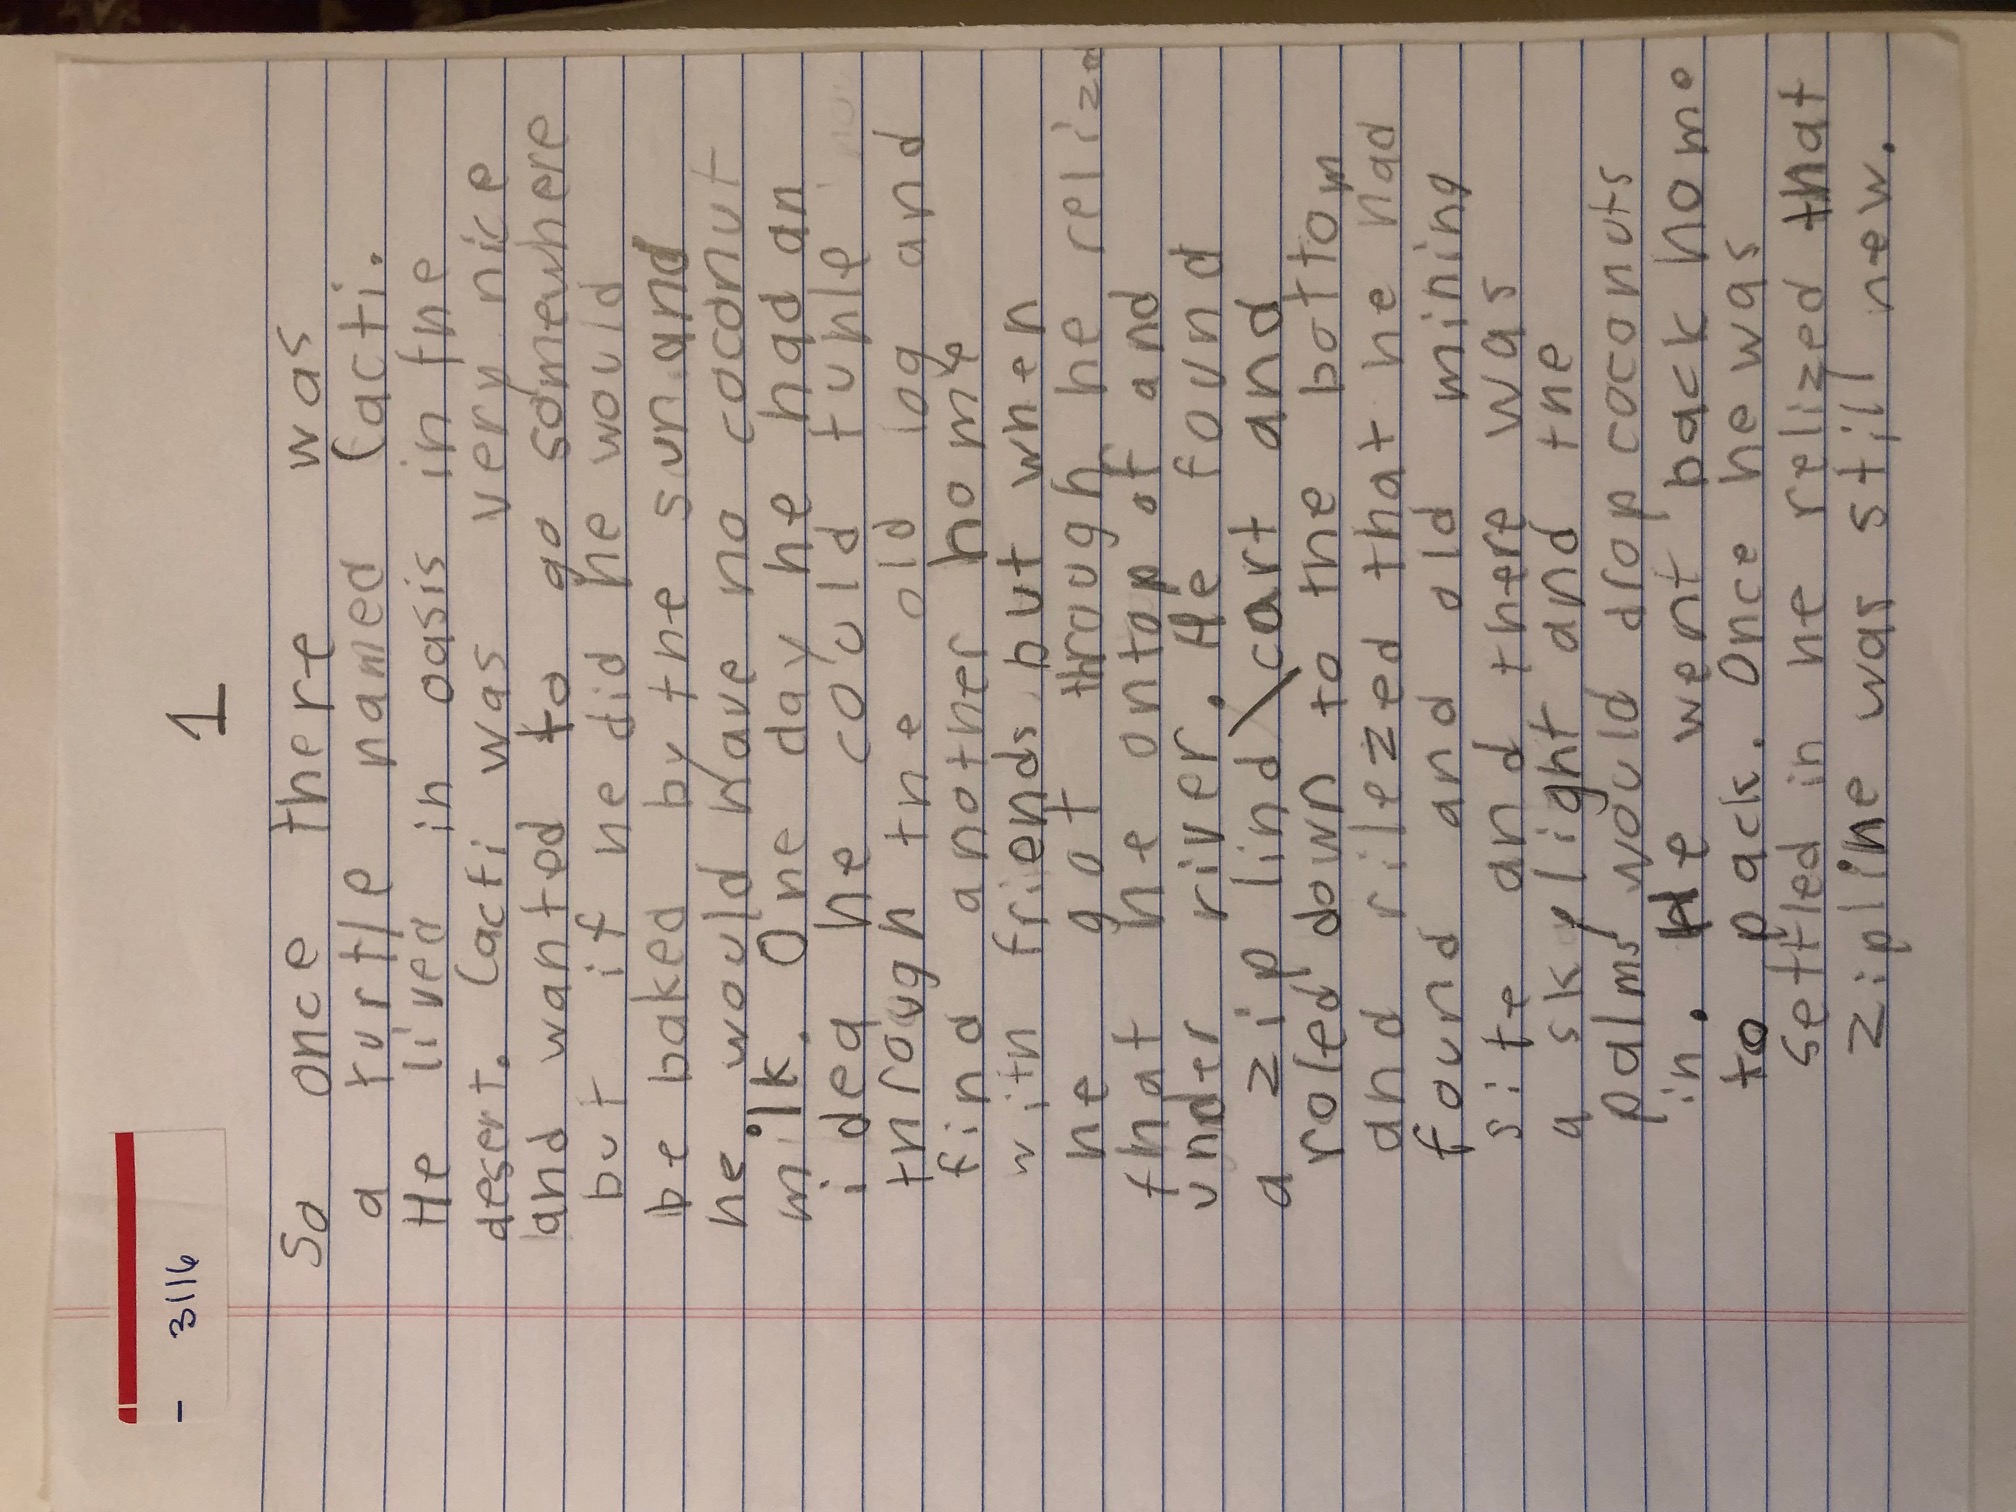 - 3116
1
So once there was
a turtle named Cacti.
He lived in oasis in the
desert. Cacti was very nice
and wanted to go somewhere
but if he did he would
be baked by the sun and
he would have no coconut
milk. One day he had an
idea he could tunle
through the old log and
find another home
with friends but when
he got through he relized
that he ontop of and
under river. He found
a zip lind\cart and
roled down to the bottom
and rilezed that he had
found and old mining
site and there was
a skylight and the
palms would drop coconuts
in. He went back home
to pack. Once he was
settled in he relized that
zipline was still new.